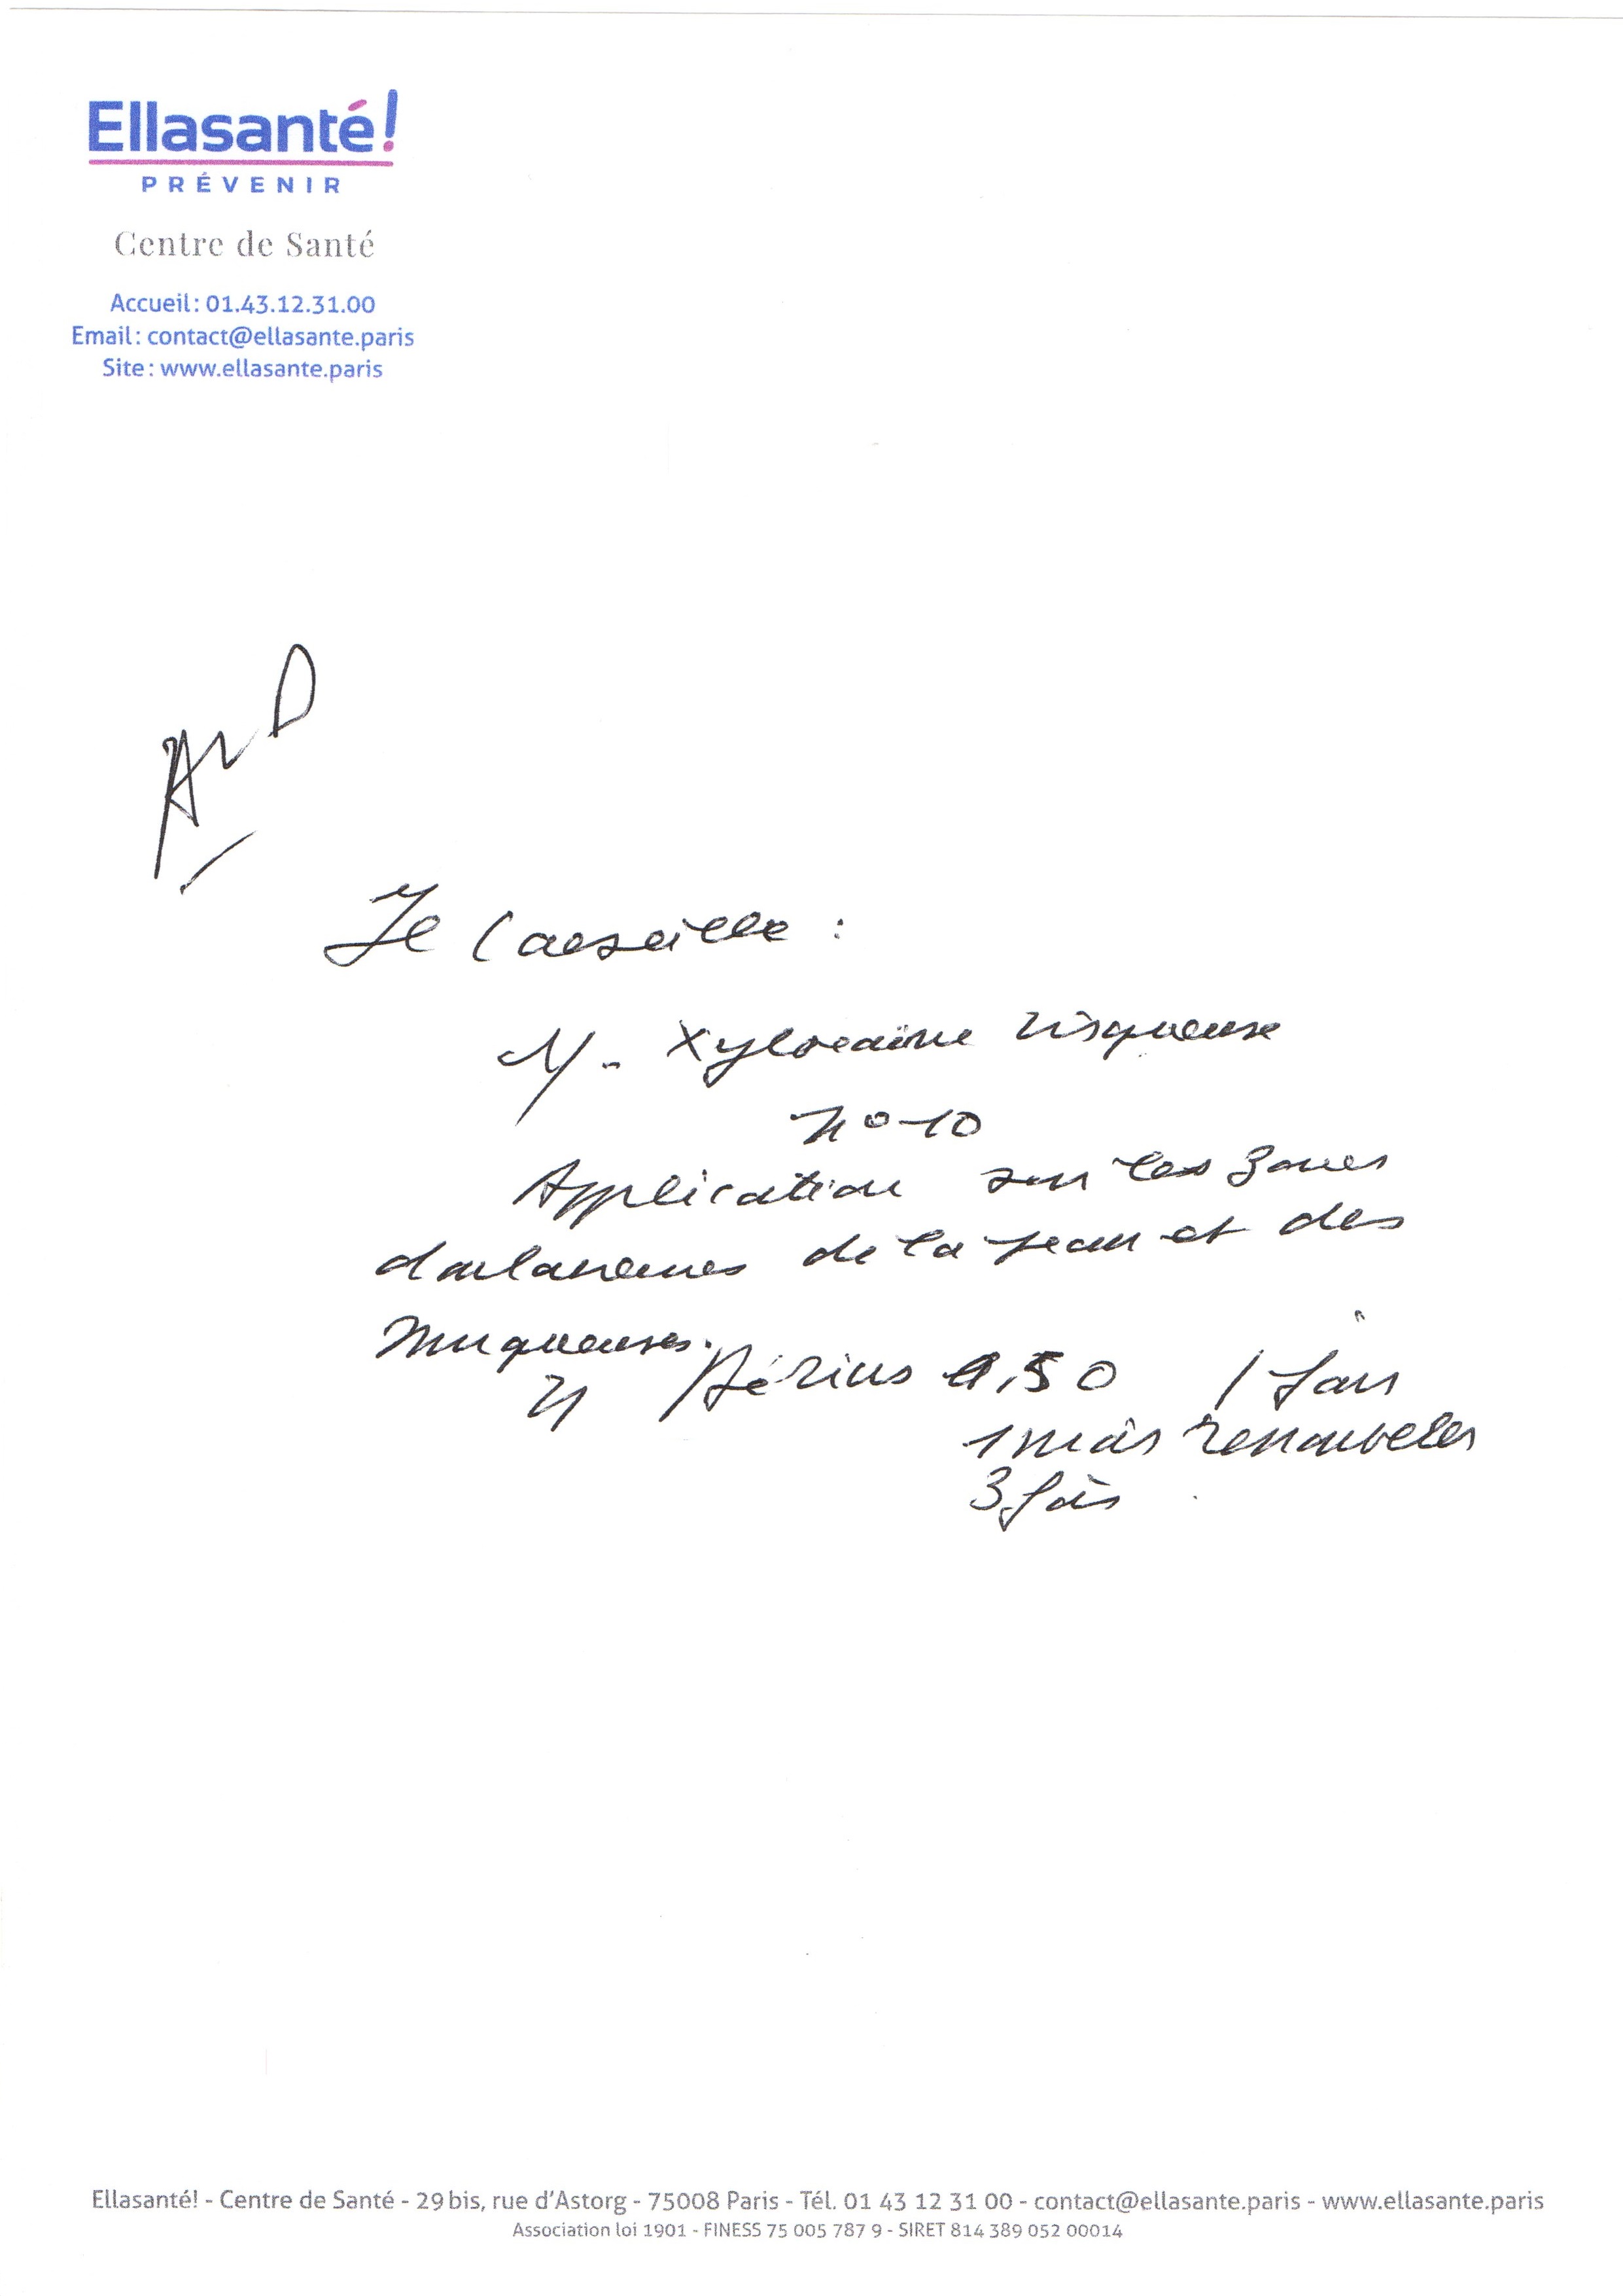 Ellasanté!
PRÉVENIR
Centre de Santé
Accueil : 01.43.12.31.00
Email : contact@ellasante.paris
Site : www.ellasante.paris
Je Conseille :
1/- Xylocaïne visqueuse
n° 10
Application sur les zones
douloureuses de la peau et des
muqueuses.
2/ Aérius 0,50 1/jour
1 mois renouveler
3 fois
Ellasanté! - Centre de Santé - 29 bis, rue d'Astorg - 75008 Paris - Tél. 01 43 12 31 00 - contact@ellasante.paris - www.ellasante.paris
Association loi 1901 - FINESS 75 005 787 9 - SIRET 814 389 052 00014